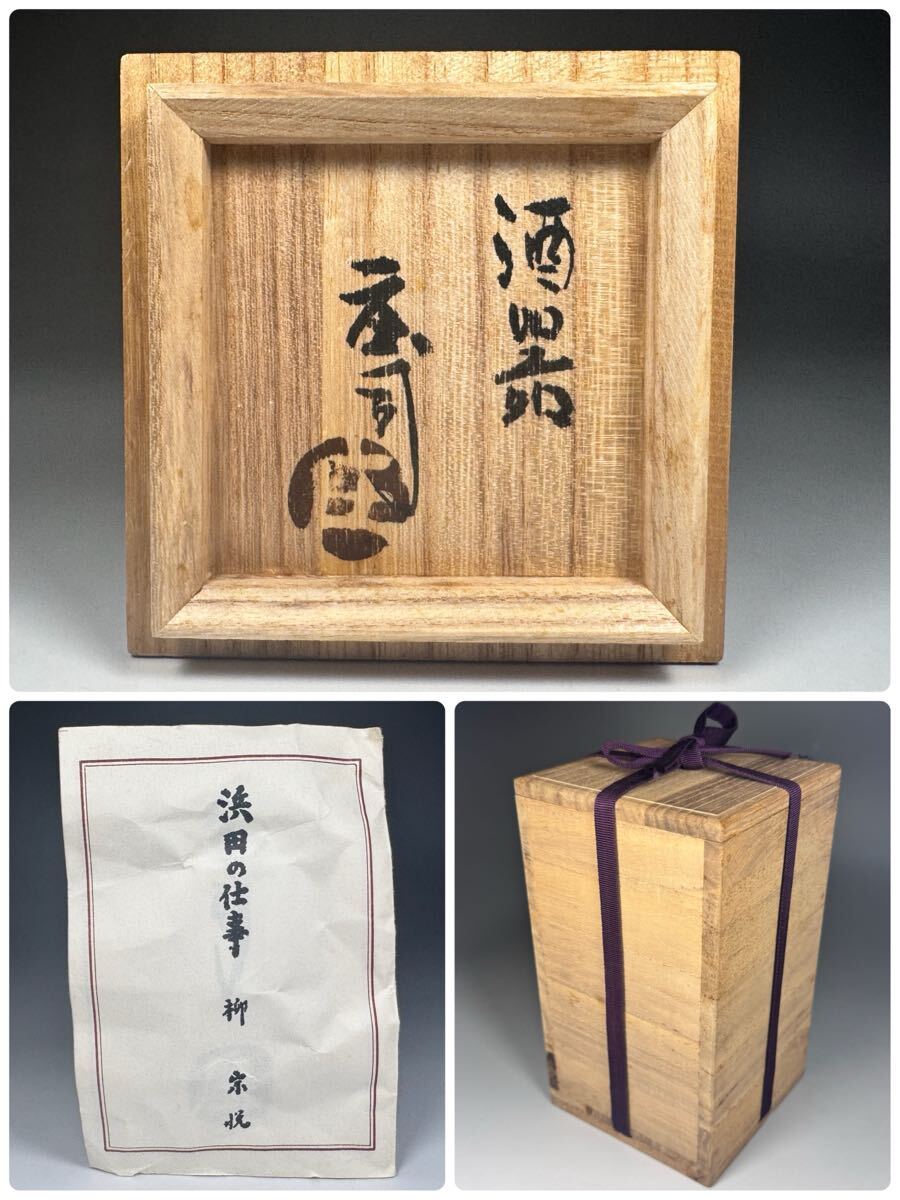 酒器
庄司
浜田の仕事
柳宗悦